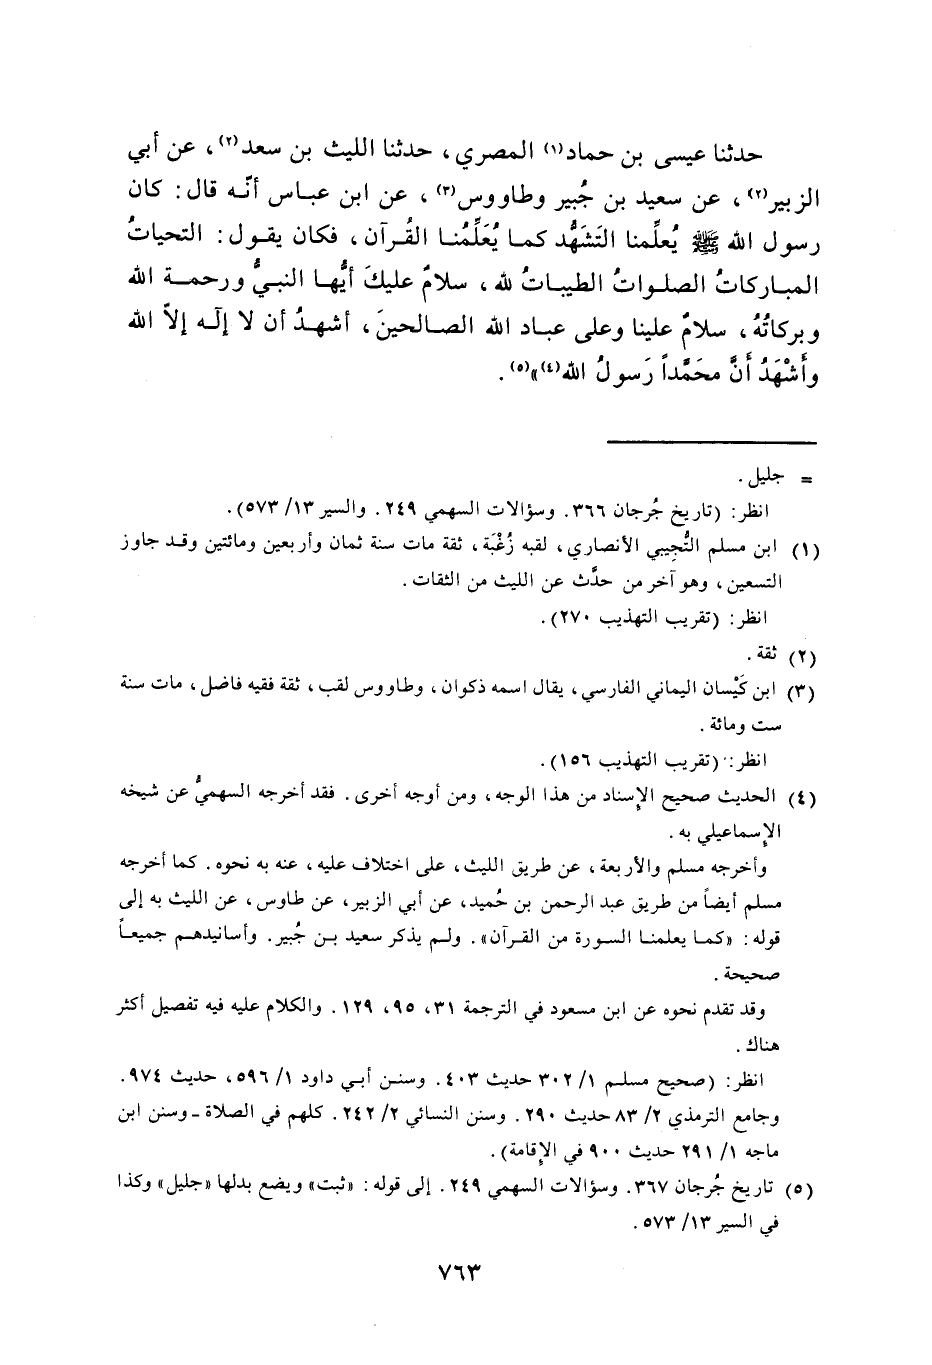 حدثنا عيسى بن حماد(١) المصري، حدثنا الليث بن سعد(٢)، عن أبي
الزبير(٢)، عن سعيد بن جُبير وطاووس(٣)، عن ابن عباس أنّه قال: كان
رسول الله ﷺ يُعلِّمنا التَشَهُّد كما يُعَلِّمُنا القُرآن، فكان يقول: التحياتُ
المباركاتُ الصلواتُ الطيباتُ لله، سلامٌ عليكَ أيُّها النبيُّ ورحمة الله
وبركاتُهُ، سلامٌ علينا وعلى عباد الله الصالحين، أشهدُ أن لا إله إلاّ الله
وأَشْهَدُ أَنَّ محَمَّداً رَسولُ الله(٤)»(٥).
= جليل.
انظر: (تاريخ جُرجان ٣٦٦. وسؤالات السهمي ٢٤٩. والسير ١٣/ ٥٧٣).
(١) ابن مسلم التُّجِيبي الأنصاري، لقبه زُغْبَة، ثقة مات سنة ثمان وأربعين ومائتين وقد جاوز
التسعين، وهو آخر من حدَّث عن الليث من الثقات.
انظر: (تقريب التهذيب ٢٧٠).
(٢) ثقة.
(٣) ابن كَيْسان اليماني الفارسي، يقال اسمه ذكوان، وطاووس لقب، ثقة فقيه فاضل، مات سنة
ست ومائة.
انظر: (تقريب التهذيب ١٥٦).
(٤) الحديث صحيح الإسناد من هذا الوجه، ومن أوجه أخرى. فقد أخرجه السهميُّ عن شيخه
الإسماعيلي به.
وأخرجه مسلم والأربعة، عن طريق الليث، على اختلاف عليه، عنه به نحوه. كما أخرجه
مسلم أيضاً من طريق عبد الرحمن بن حُميد، عن أبي الزبير، عن طاوس، عن الليث به إلى
قوله: «كما يعلمنا السورة من القرآن». ولم يذكر سعيد بن جُبير. وأسانيدهم جميعاً
صحيحة.
وقد تقدم نحوه عن ابن مسعود في الترجمة ٣١، ٩٥، ١٢٩. والكلام عليه فيه تفصيل أكثر
هناك.
انظر: (صحيح مسلم ١/ ٣٠٢ حديث ٤٠٣. وسنن أبي داود ١/ ٥٩٦، حديث ٩٧٤.
وجامع الترمذي ٢/ ٨٣ حديث ٢٩٠. وسنن النسائي ٢/ ٢٤٢. كلهم في الصلاة ـ وسنن ابن
ماجه ١/ ٢٩١ حديث ٩٠٠ في الإقامة).
(٥) تاريخ جُرجان ٣٦٧. وسؤالات السهمي ٢٤٩. إلى قوله: «ثبت» ويضع بدلها «جليل» وكذا
في السير ١٣/ ٥٧٣.
٧٦٣